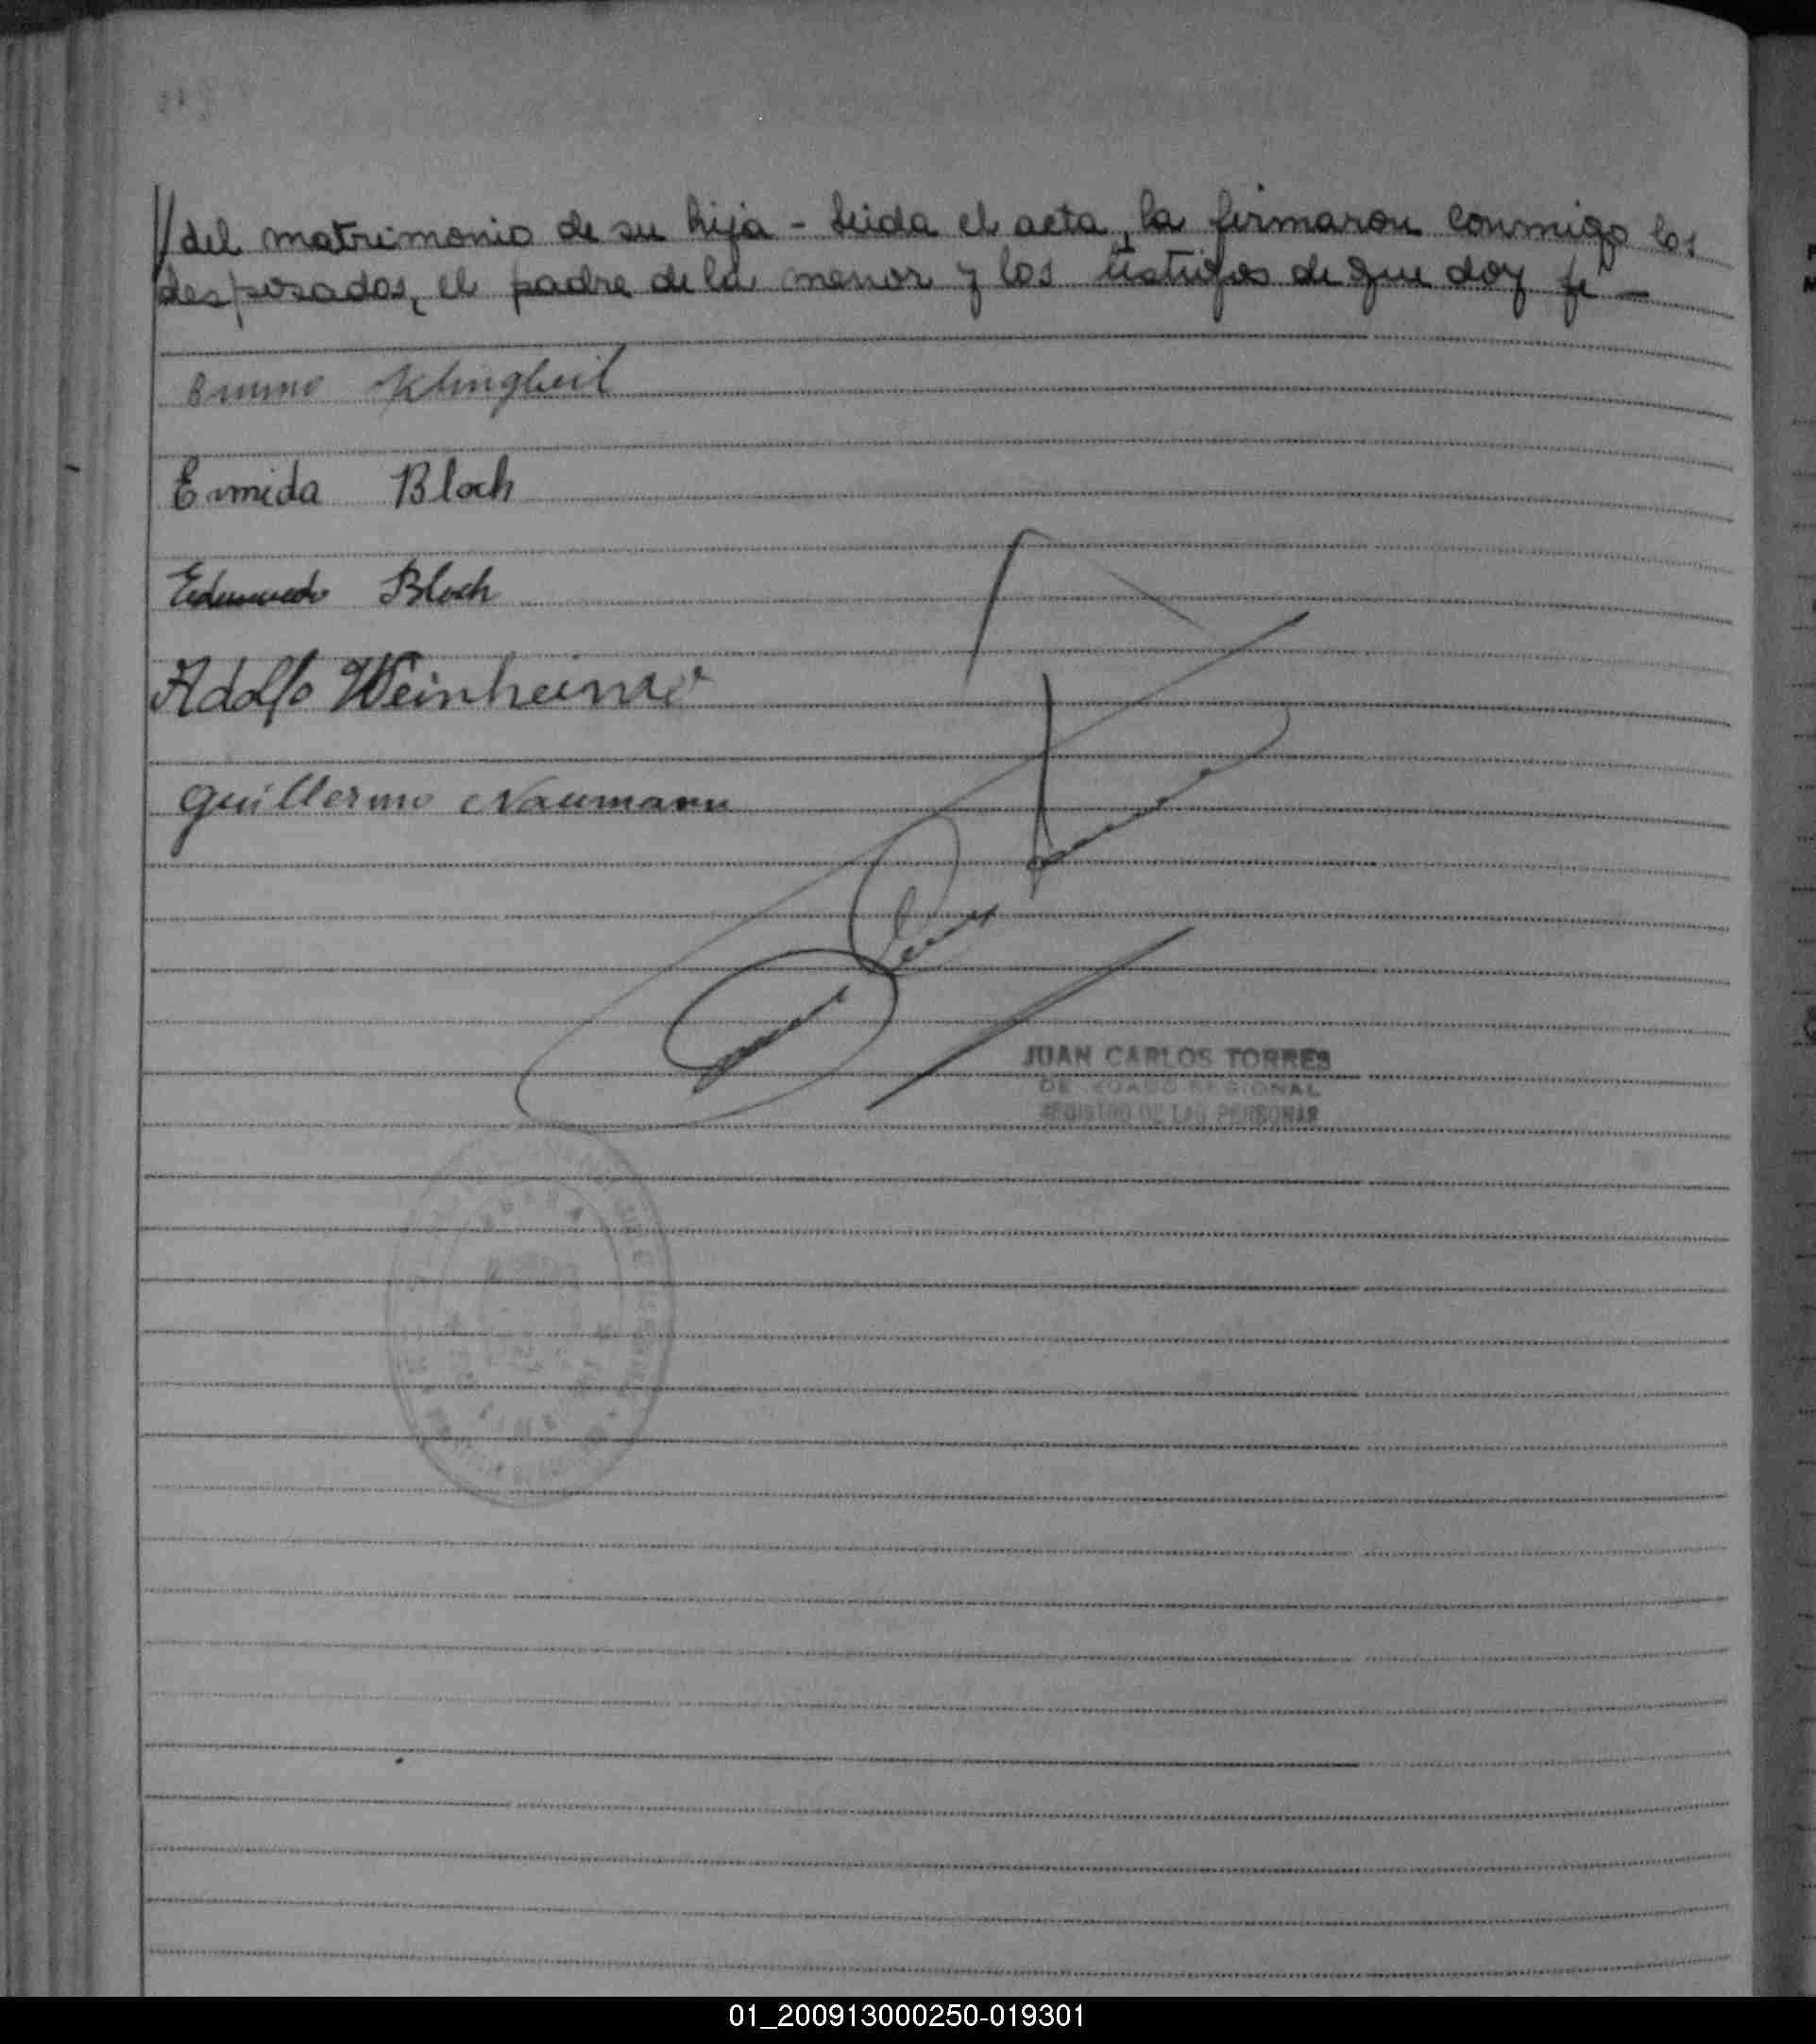 //del matrimonio de su hija - Leida el acta, la firmaron conmigo los
desposados, el padre de la menor y los testigos de que doy fe —
Bruno Klingbeil
Ermida Bloch
Edmundo Bloch
Adolfo Weinheimer
Guillermo Naumann
JUAN CARLOS TORRES
DELEGADO REGIONAL
REGISTRO DE LAS PERSONAS
01_200913000250-019301